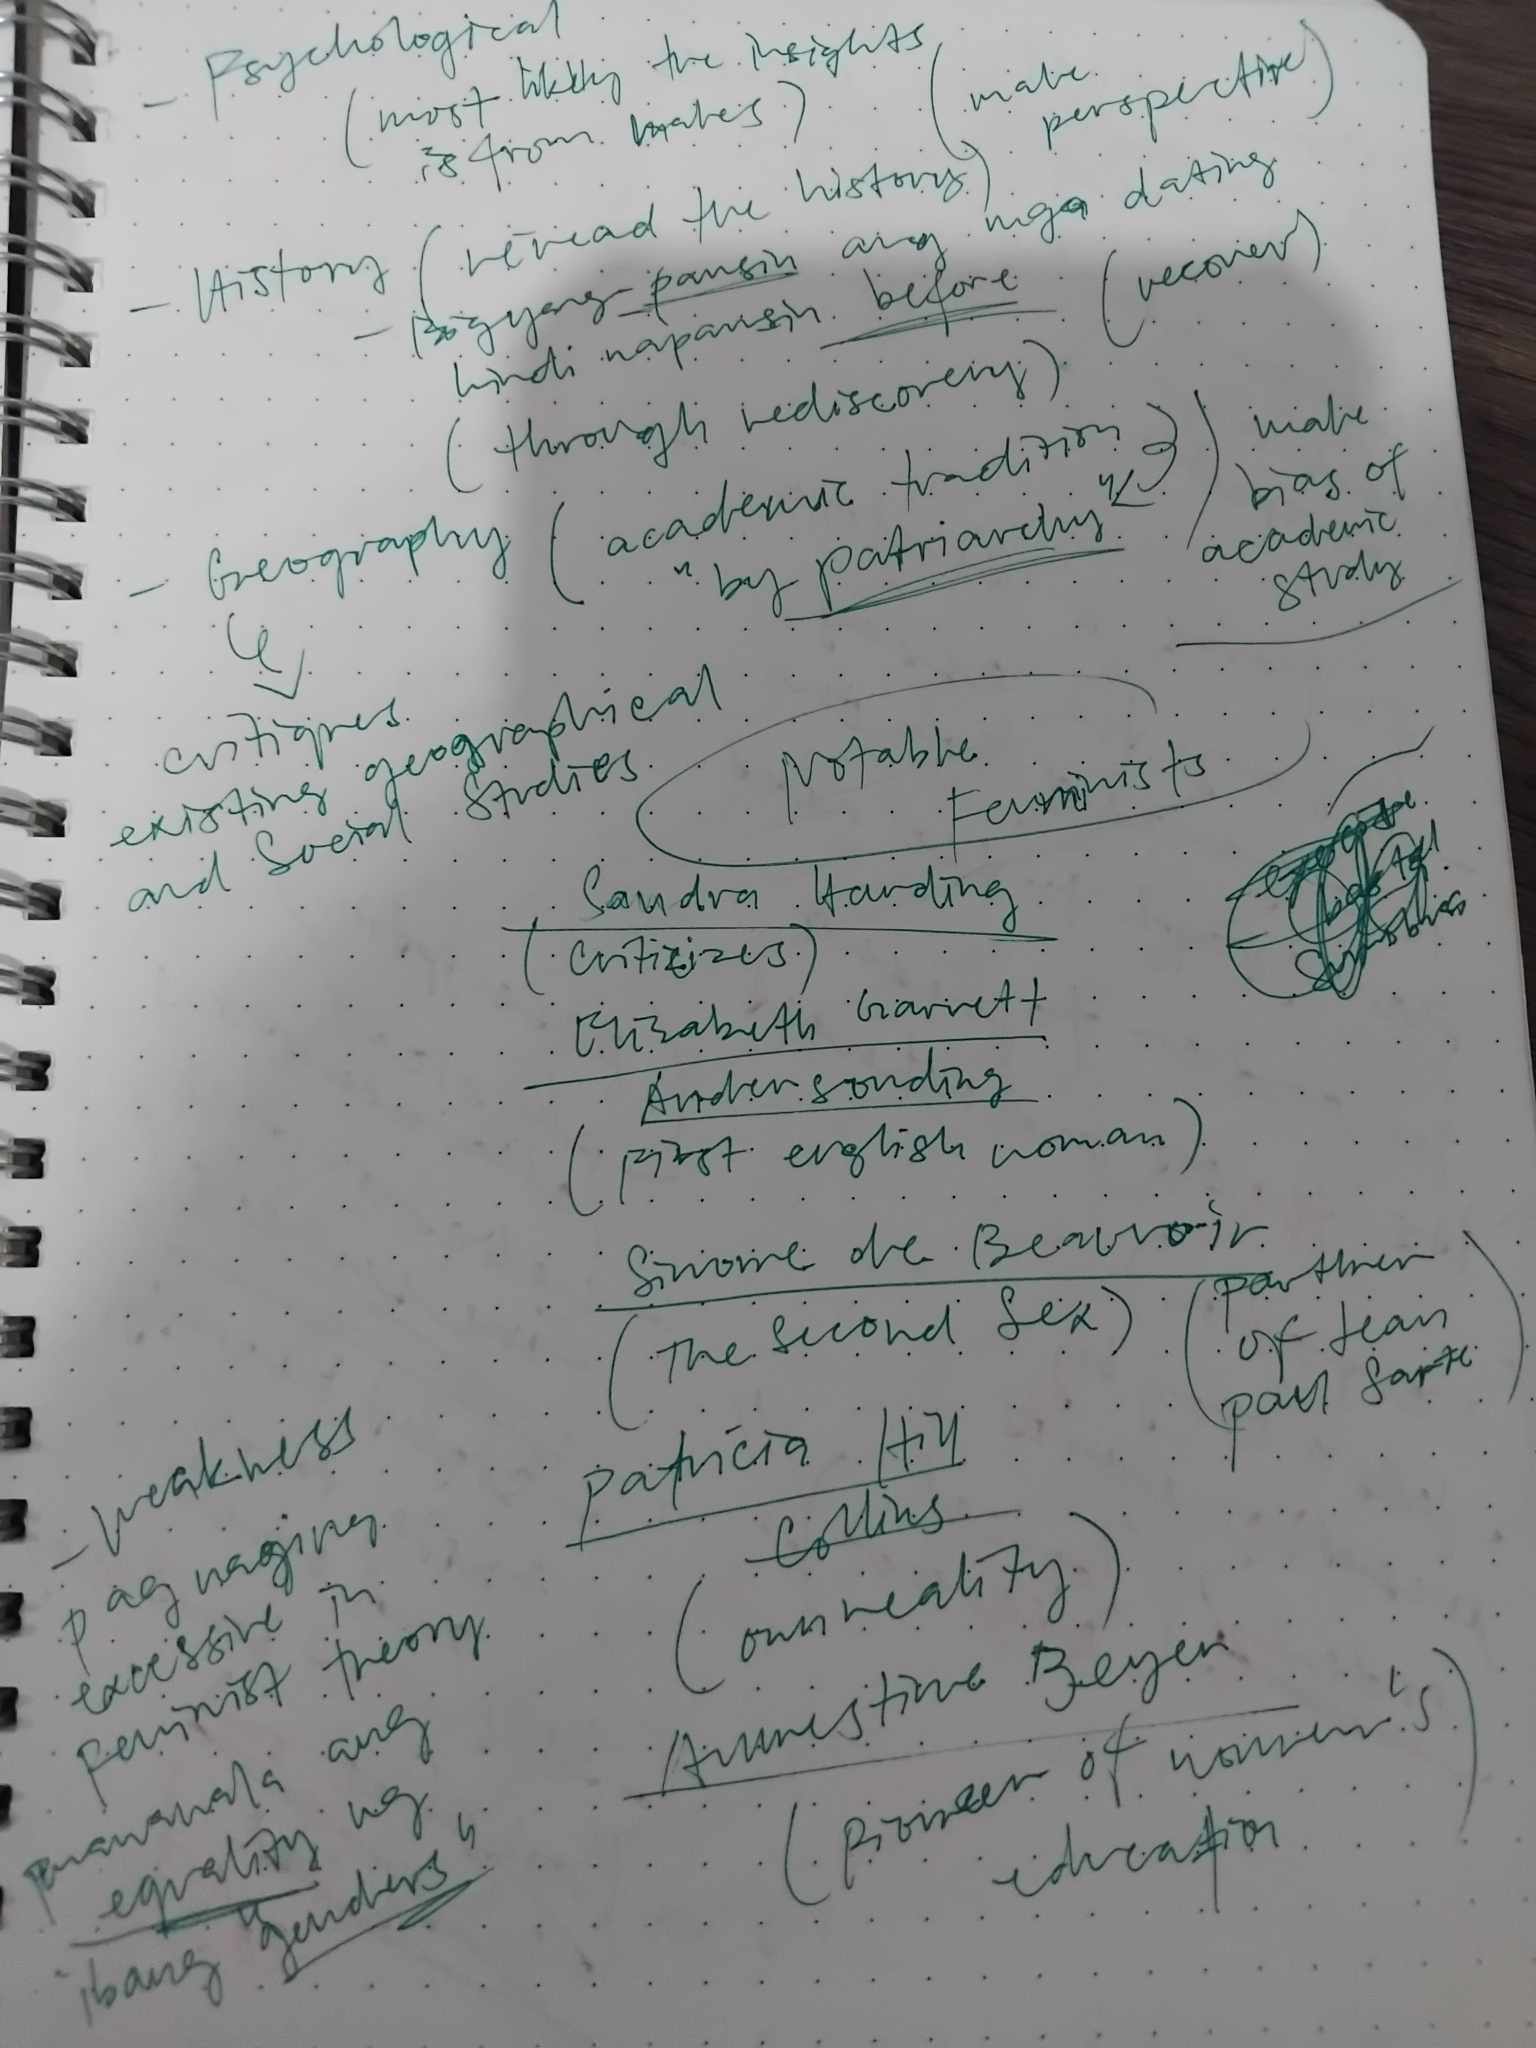 - Psychological
(most likely the insights
is from males) (male
perspective)
- History (reread the history)
- Bigyang pansin ang mga dating
hindi napansin before (recover)
(through rediscovery)
- Geography (academic tradition
"by patriarchy") male
bias of
academic
study
critiques
existing geographical
and Social Studies
Notable
Feminists
Sandra Harding
(criticizes)
Elizabeth Garrett
Andersonding
(First english woman)
Simone de Beauvoir
(The Second Sex) (parthner
of Jean
paul Sarte)
Patricia Hill
Collins
(own reality)
Annestine Beyer
(Pioneer of women's
education
- Weakness
pag naging
excessive in
Feminist theory
mawawala ang
equality ng
ibang "genders"